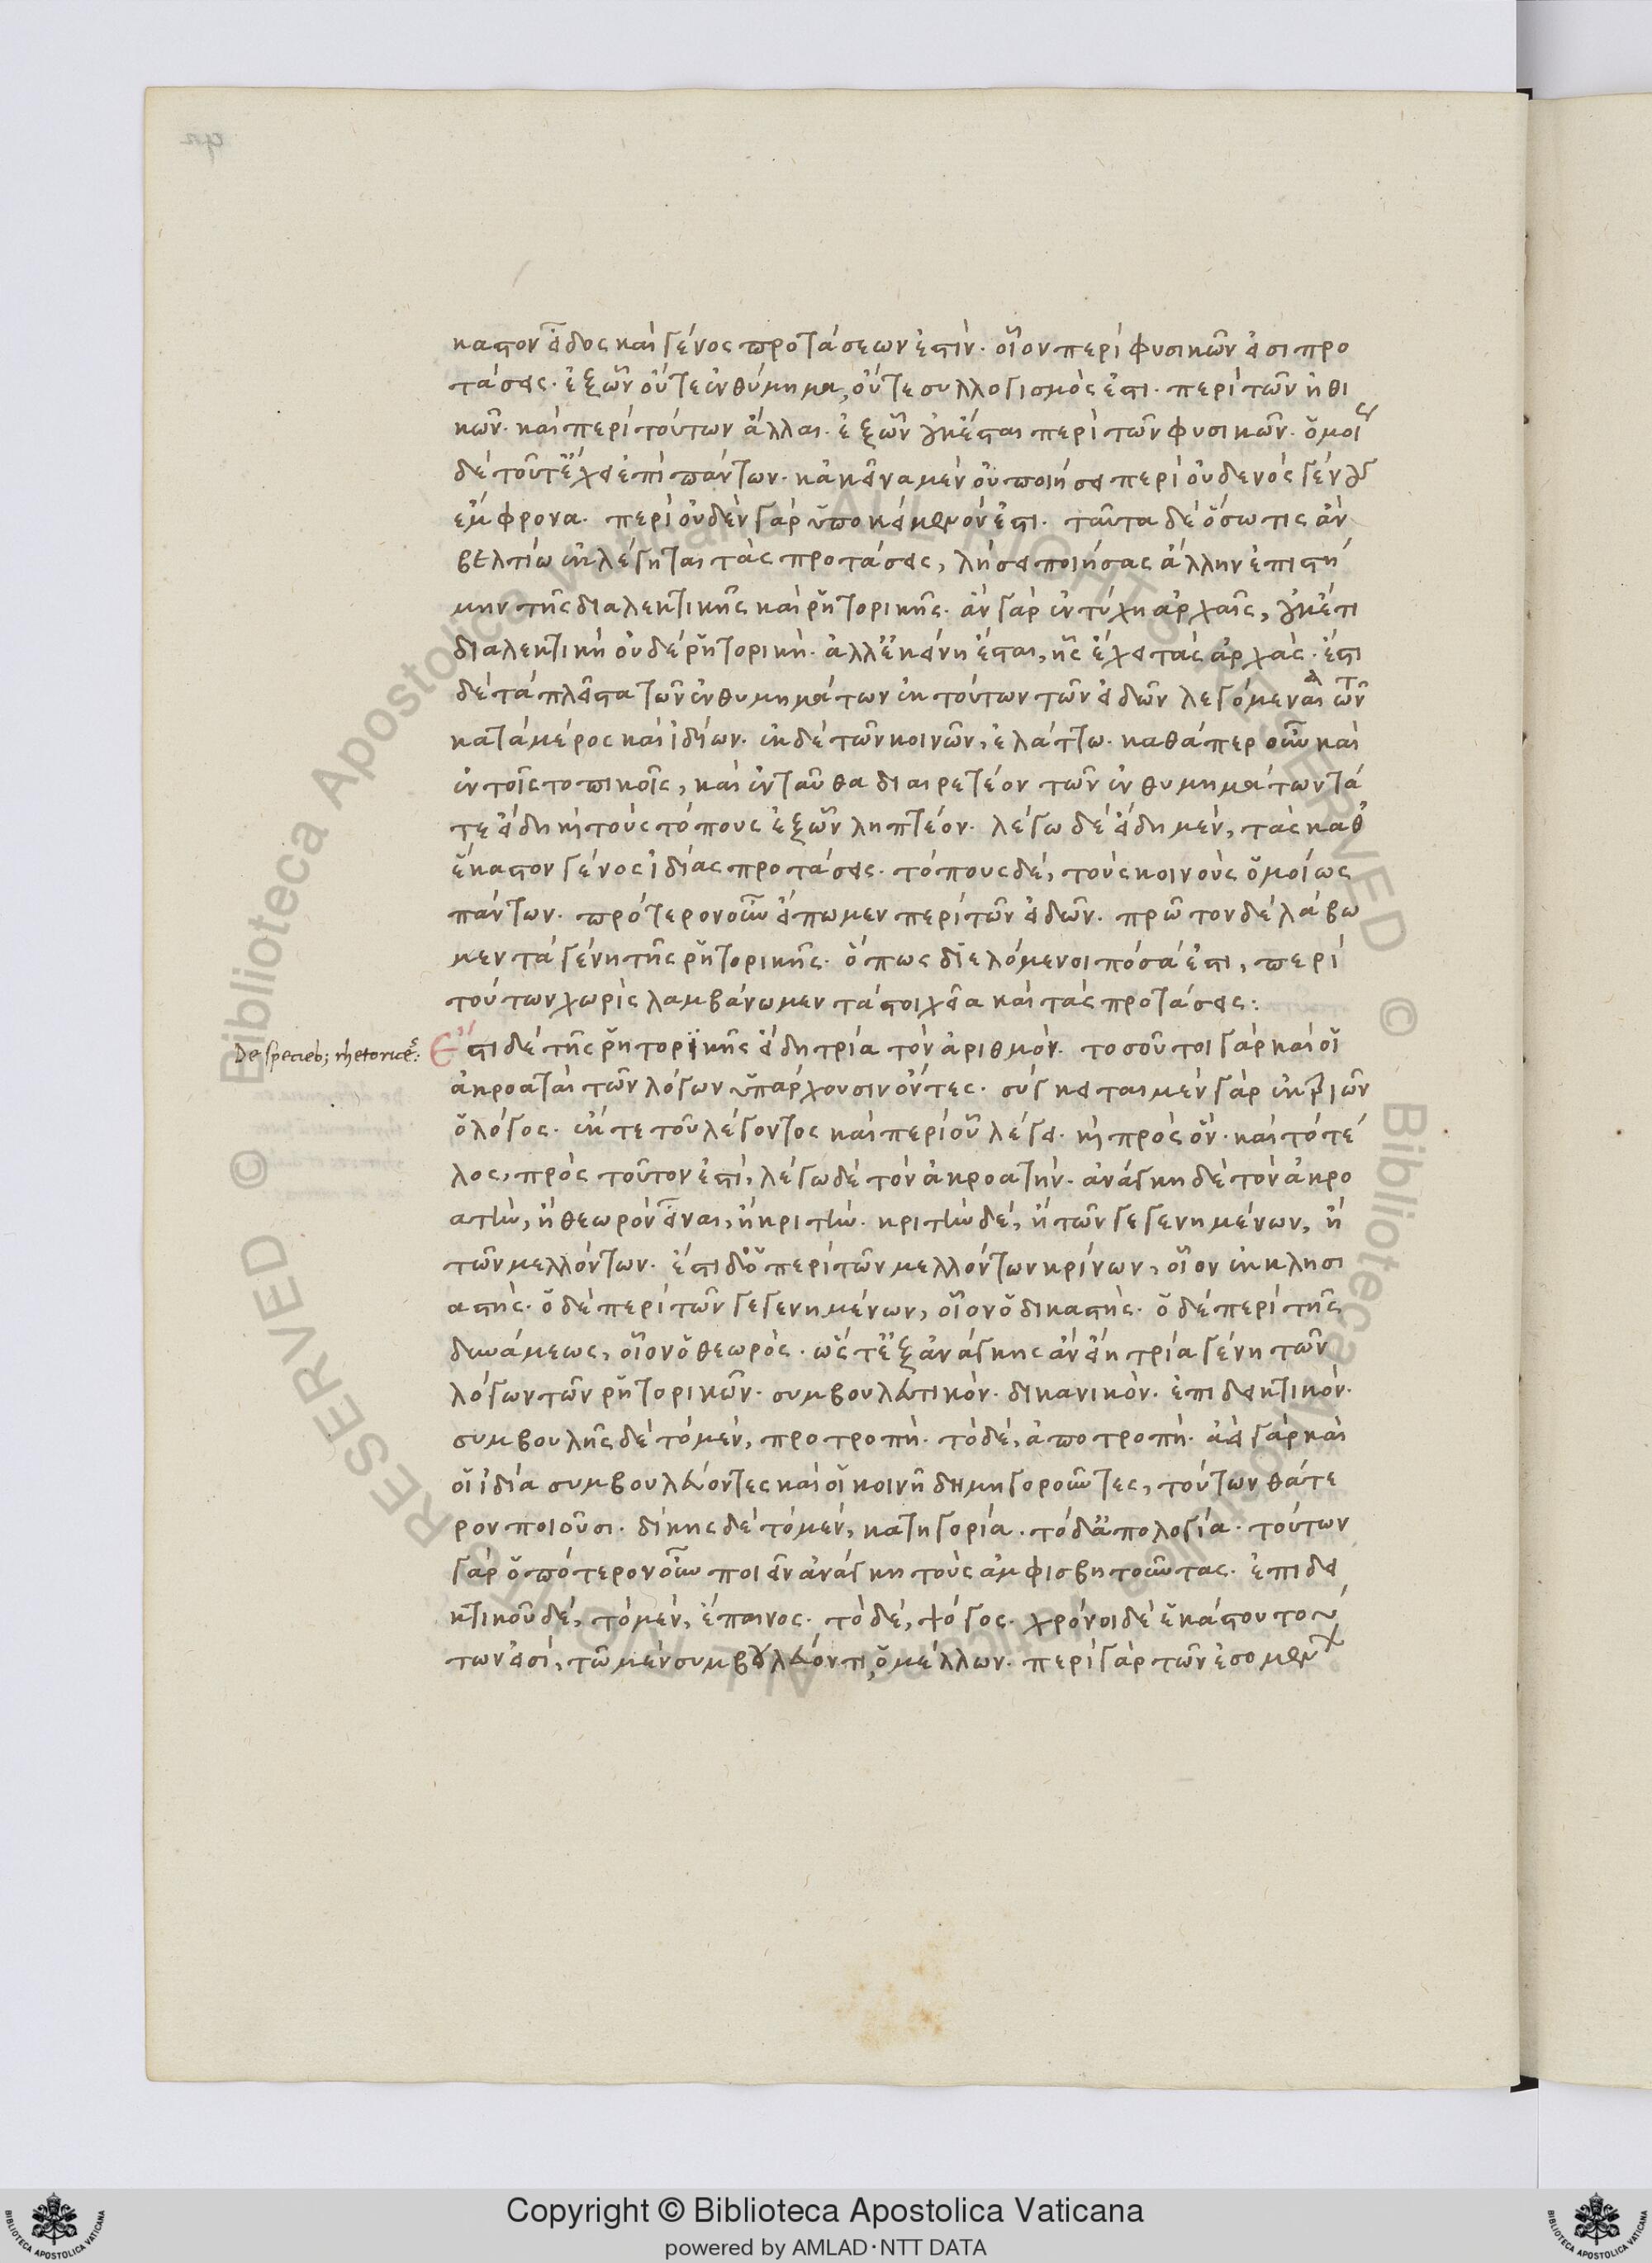 καστον εἶδος καὶ γένος προτάσεων ἐστίν. οἷον περὶ φυσικῶν εἰσι προ
τάσεις. ἐξ ὧν οὔτε ἐνθύμημα, οὔτε συλλογισμός ἐστι. περὶ τῶν ἠθι
κῶν. καὶ περὶ τούτων ἄλλαι. ἐξ ὧν οὐκ ἔσται περὶ τῶν φυσικῶν. ὁμοίως
δὲ τοῦτ' ἔχει ἐπὶ πάντων. κἀκεῖνα μὲν οὐ ποιήσει περὶ οὐδενὸς γένους
ἔμφρονα. περὶ οὐδὲν γὰρ ὑποκείμενόν ἐστι. ταῦτα δὲ ὅσω τις ἂν
βελτίω ἐκλέγηται τὰς προτάσεις, λήσει ποιήσας ἄλλην ἐπιστή
μην τῆς διαλεκτικῆς καὶ ῥητορικῆς. ἂν γὰρ ἐντύχη ἀρχαῖς, οὐκέτι
διαλεκτικὴ οὐδὲ ῥητορικὴ. ἀλλ' ἐκείνη ἔσται, ἧς ἔχει τὰς ἀρχάς. ἔστι
δὲ τὰ πλεῖστα τῶν ἐνθυμημάτων ἐκ τούτων τῶν εἰδῶν λεγόμενα τῶν
κατὰ μέρος καὶ ἰδίων. ἐκ δὲ τῶν κοινῶν, ἐλάττω. καθάπερ οὖν καὶ
ἐν τοῖς τοπικοῖς, καὶ ἐνταῦθα διαιρετέον τῶν ἐνθυμημάτων τά
τε εἴδη καὶ τοὺς τόπους ἐξ ὧν ληπτέον. λέγω δὲ εἴδη μὲν, τὰς καθ'
ἕκαστον γένος ἰδίας προτάσεις. τόπους δὲ, τοὺς κοινοὺς ὁμοίως
πάντων. πρότερον οὖν εἴπωμεν περὶ τῶν εἰδῶν. πρῶτον δὲ λάβω
μεν τὰ γένη τῆς ῥητορικῆς. ὅπως διελόμενοι πόσα ἐστι, περὶ
τούτων χωρὶς λαμβάνωμεν τὰ στοιχεῖα καὶ τὰς προτάσεις:
De specieb; rhetoricę: Ἔστι δὲ τῆς ῥητορικῆς εἴδη τρία τὸν ἀριθμόν. τοσοῦτοι γὰρ καὶ οἱ
ἀκροαταὶ τῶν λόγων ὑπάρχουσιν ὄντες. σύγκειται μὲν γὰρ ἐκ τριῶν
ὁ λόγος. ἔκ τε τοῦ λέγοντος καὶ περὶ οὗ λέγει. καὶ πρὸς ὅν. καὶ τὸ τέ
λος, πρὸς τοῦτον ἐστί, λέγω δὲ τὸν ἀκροατὴν. ἀνάγκη δὲ τὸν ἀκρο
ατὴν, ἢ θεωρὸν εἶναι, ἢ κριτὴν. κριτὴν δὲ, ἢ τῶν γεγενημένων, ἢ
τῶν μελλόντων. ἔστι δ' ὁ περὶ τῶν μελλόντων κρίνων, οἷον ἐκκλησι
αστὴς. ὁ δὲ περὶ τῶν γεγενημένων, οἷον ὁ δικαστὴς. ὁ δὲ περὶ τῆς
δυνάμεως, οἷον ὁ θεωρὸς. ὥστ' ἐξ ἀνάγκης ἂν εἴη τρία γένη τῶν
λόγων τῶν ῥητορικῶν. συμβουλευτικὸν. δικανικὸν. ἐπιδεικτικόν.
συμβουλῆς δὲ τὸ μὲν, προτροπὴ. τὸ δὲ, ἀποτροπὴ. ἀεὶ γὰρ καὶ
οἱ ἰδία συμβουλεύοντες καὶ οἱ κοινῆ δημηγοροῦντες, τούτων θάτε
ρον ποιοῦσι. δίκης δὲ τὸ μὲν, κατηγορία. τὸ δ' ἀπολογία. τούτων
γὰρ ὁπότερον οὖν ποιεῖν ἀνάγκη τοὺς ἀμφισβητοῦντας. ἐπιδει
κτικοῦ δὲ, τὸ μὲν, ἔπαινος. τὸ δὲ, ψόγος. χρόνοι δὲ ἑκάστου τού
των εἰσὶ, τῶ μὲν συμβουλεύοντι, ὁ μέλλων. περὶ γὰρ τῶν ἐσομένων